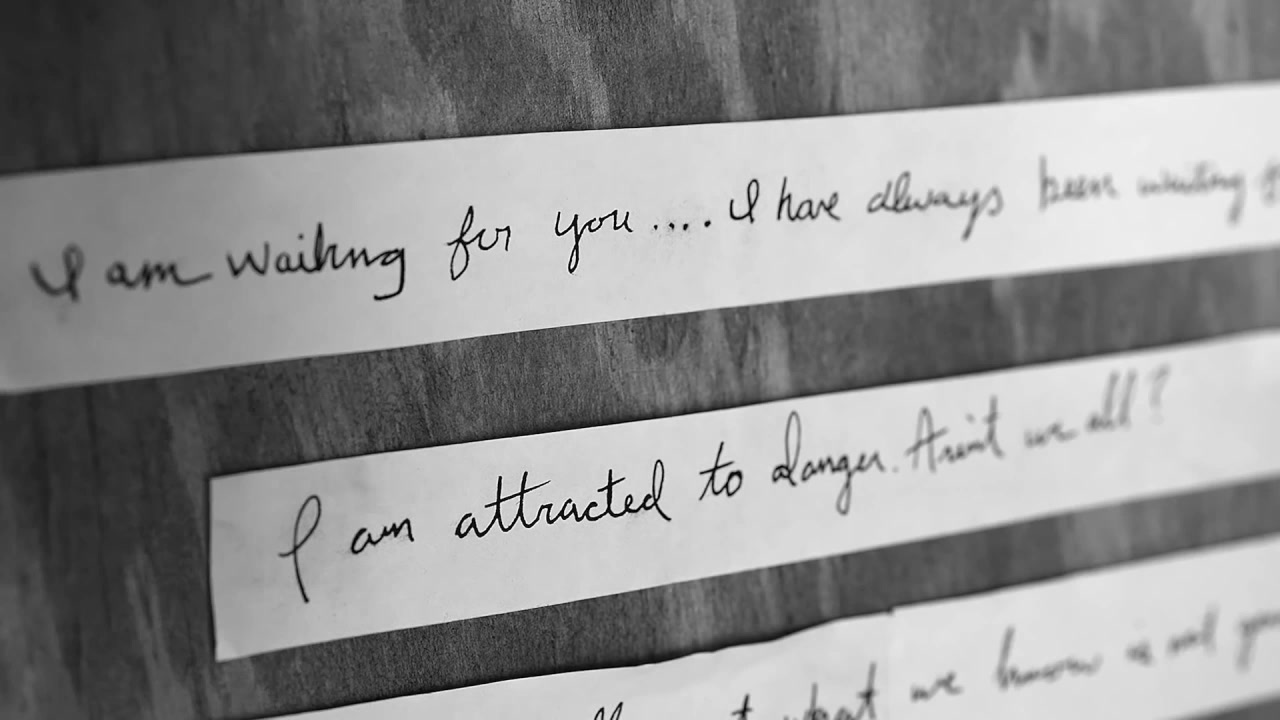 I am waiting for you.... I have always been waiting
I am attracted to danger. Aren't we all?
what we know is not